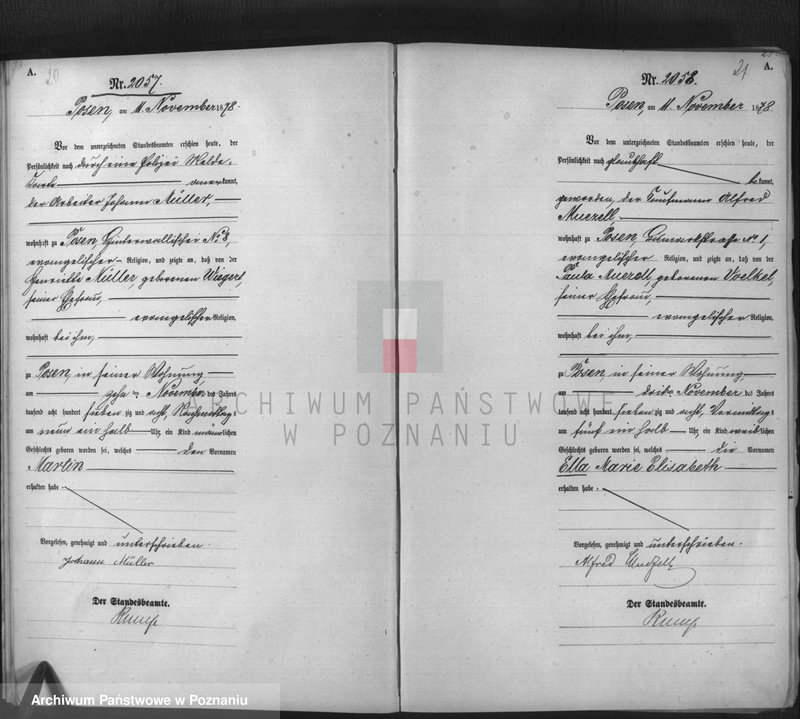 A. 20
Nr. 2057.
Posen, am 11. November 1878.
Vor dem unterzeichneten Standesbeamten erschien heute, der
Persönlichkeit nach durch eine Polizei Melde-
Karte anerkannt,
der Arbeiter Johann Müller,
wohnhaft zu Posen, Hinterwallischei No 8,
evangelischer Religion, und zeigte an, daß von der
Henriette Müller, geborenen Wiegert,
seiner Ehefrau,
evangelischer Religion,
wohnhaft bei ihm,
zu Posen, in seiner Wohnung
am zehnten November des Jahres
tausend acht hundert sieben zig und acht, Nachmittags
um neun ein halb Uhr, ein Kind männlichen
Geschlechts geboren worden sei, welches den Vornamen
Martin
erhalten habe.
Vorgelesen, genehmigt und unterschrieben.
Johann Müller
Der Standesbeamte.
Rump
21 A.
Nr. 2058.
Posen, am 11. November 1878
Vor dem unterzeichneten Standesbeamten erschien heute, der
Persönlichkeit nach glaubhaft
bekannt,
geworden, der Kaufmann Alfred
Muezell,
wohnhaft zu Posen, Bismarkstrasse No 1,
evangelischer Religion, und zeigte an, daß von der
Paula Muezell geborenen Voelkel,
seiner Ehefrau,
evangelischer Religion,
wohnhaft bei ihm,
zu Posen, in seiner Wohnung,
am dritten November des Jahres
tausend acht hundert sieben zig und acht, Vormittags
um fünf ein halb Uhr, ein Kind weiblichen
Geschlechts geboren worden sei, welches die Vornamen
Ella Marie Elisabeth
erhalten habe.
Vorgelesen, genehmigt und unterschrieben.
Alfred Muezell
Der Standesbeamte.
Rump
ARCHIWUM PAŃSTWOWE
W POZNANIU
Archiwum Państwowe w Poznaniu